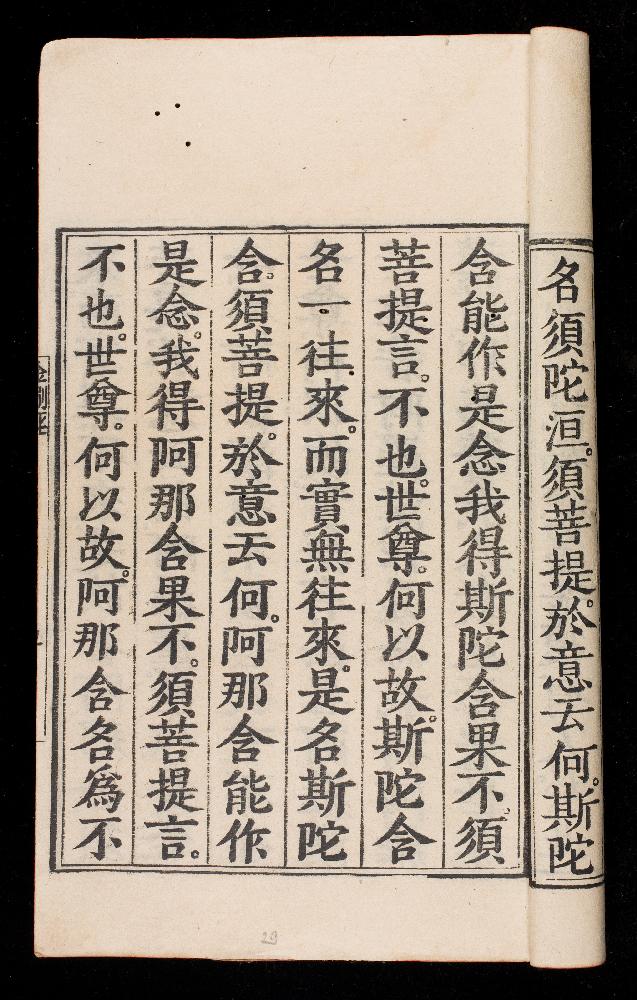 名須陀洹。須菩提。於意云何。斯陀
含能作是念。我得斯陀含果不。須
菩提言。不也。世尊。何以故。斯陀含
名一往來。而實無往來。是名斯陀
含。須菩提。於意云何。阿那含能作
是念。我得阿那含果不。須菩提言。
不也。世尊。何以故。阿那含名爲不
29